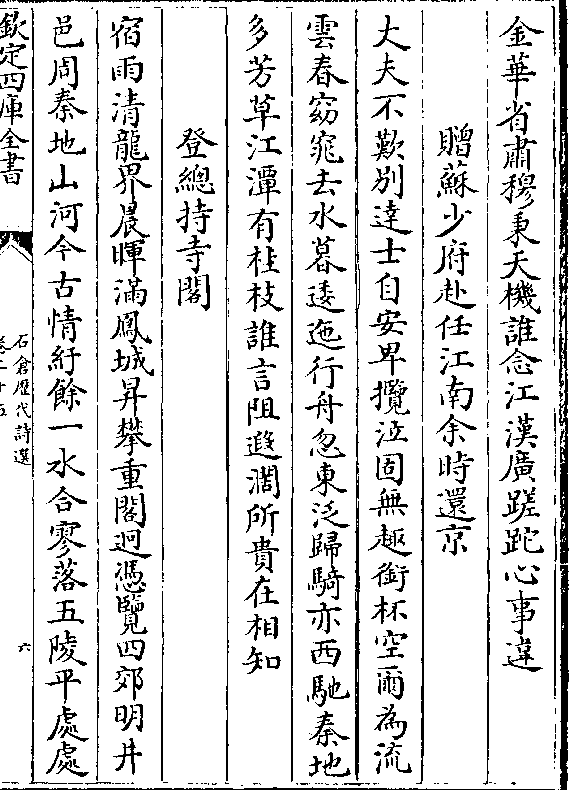 金華省肅穆秉天機誰念江漢廣蹉跎心事違
贈蘇少府赴任江南余時還京
大夫不歎別達士自安卑攬泣固無趣銜杯空爾為流
雲春窈窕去水暮逶迤行舟忽東泛歸騎亦西馳秦地
多芳草江潭有桂枝誰言阻遐濶所貴在相知
登總持寺閣
宿雨清龍界晨暉滿鳳城昇攀重閣迥憑覽四郊明井
邑周秦地山河今古情紆餘一水合寥落五陵平處處
欽定四庫全書
石倉歷代詩選
卷二十五
六